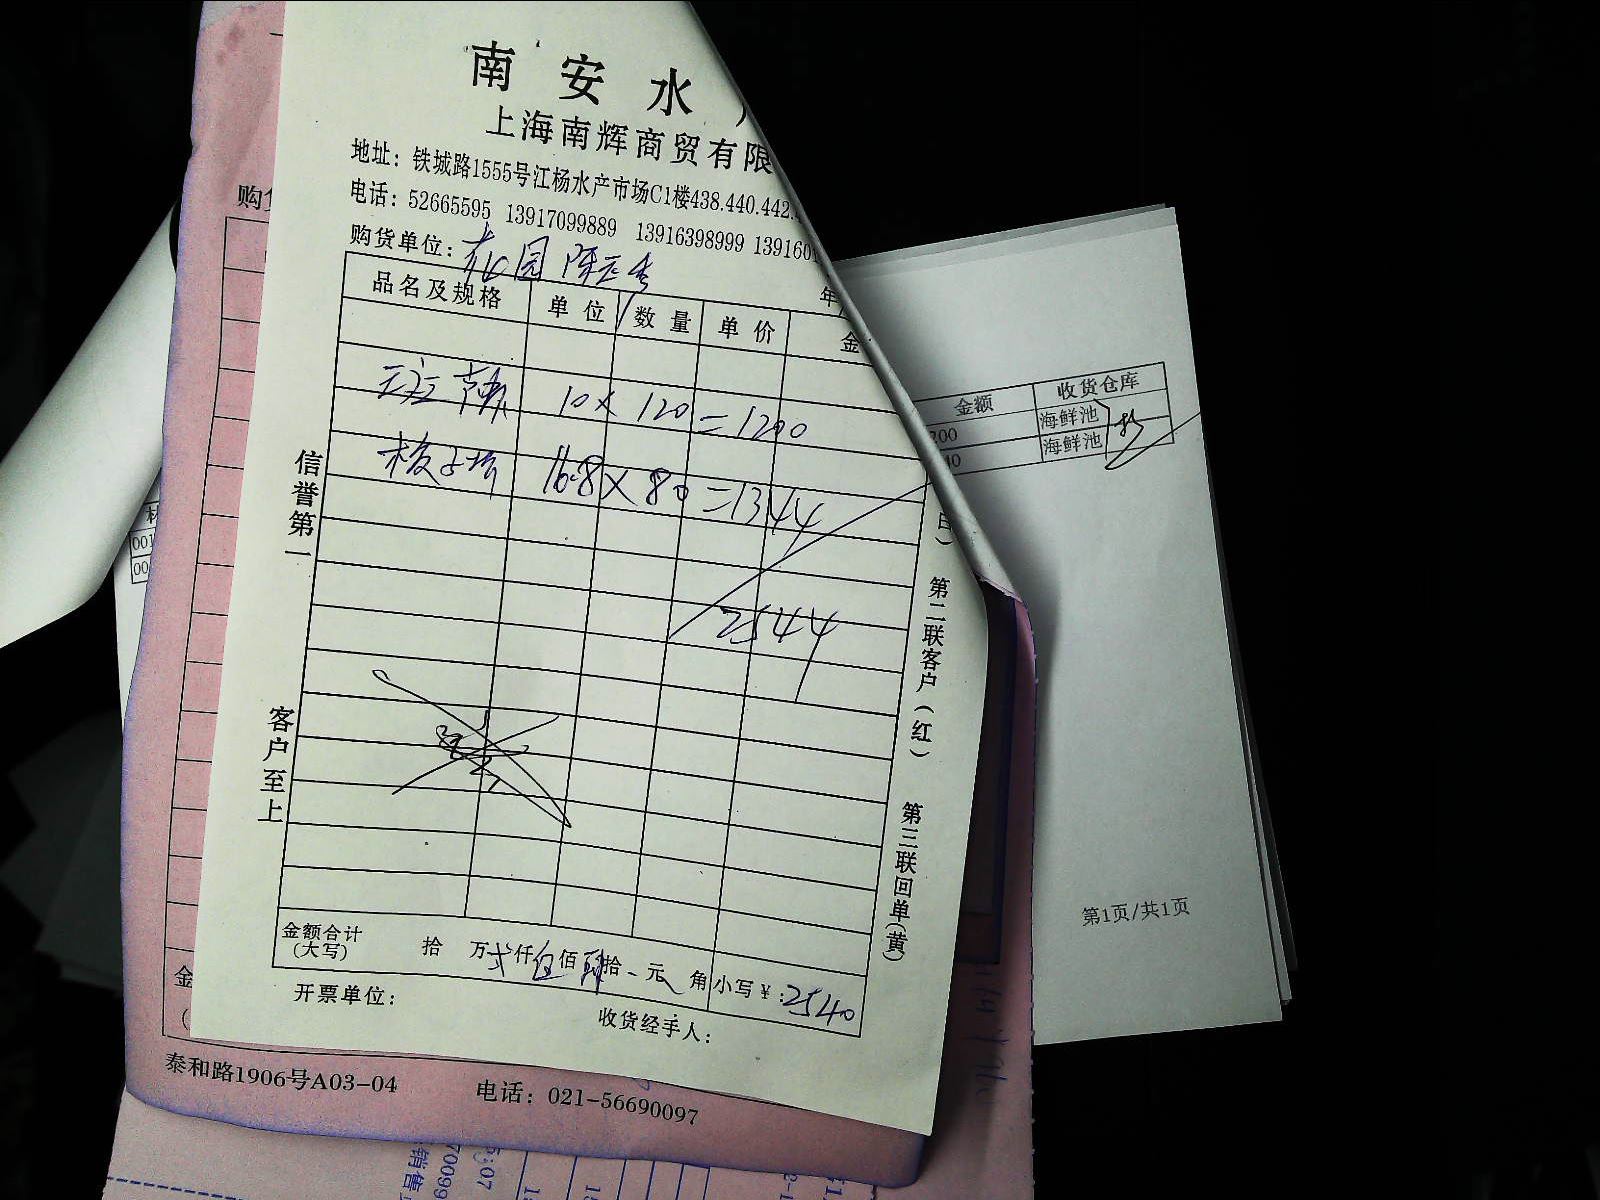 南安水
上海南辉商贸有限
地址：铁城路1555号江杨水产市场C1楼438.440.442.
电话：52665595 13917099889 13916398999 139160
购货单位：花园
年
品名及规格 单位 数量 单价 金
10 × 120 = 1200
梭子 16.8 × 80 = 1344
2544
信誉第一
客户至上
第二联客户(红)
第三联回单(黄)
金额合计(大写) 拾 万 弍仟 伍佰 肆拾 元 角 小写￥：2540
开票单位：
收货经手人：
购
金
泰和路1906号A03-04 电话：021-56690097
金额 收货仓库
海鲜池
海鲜池
第1页/共1页
001
00